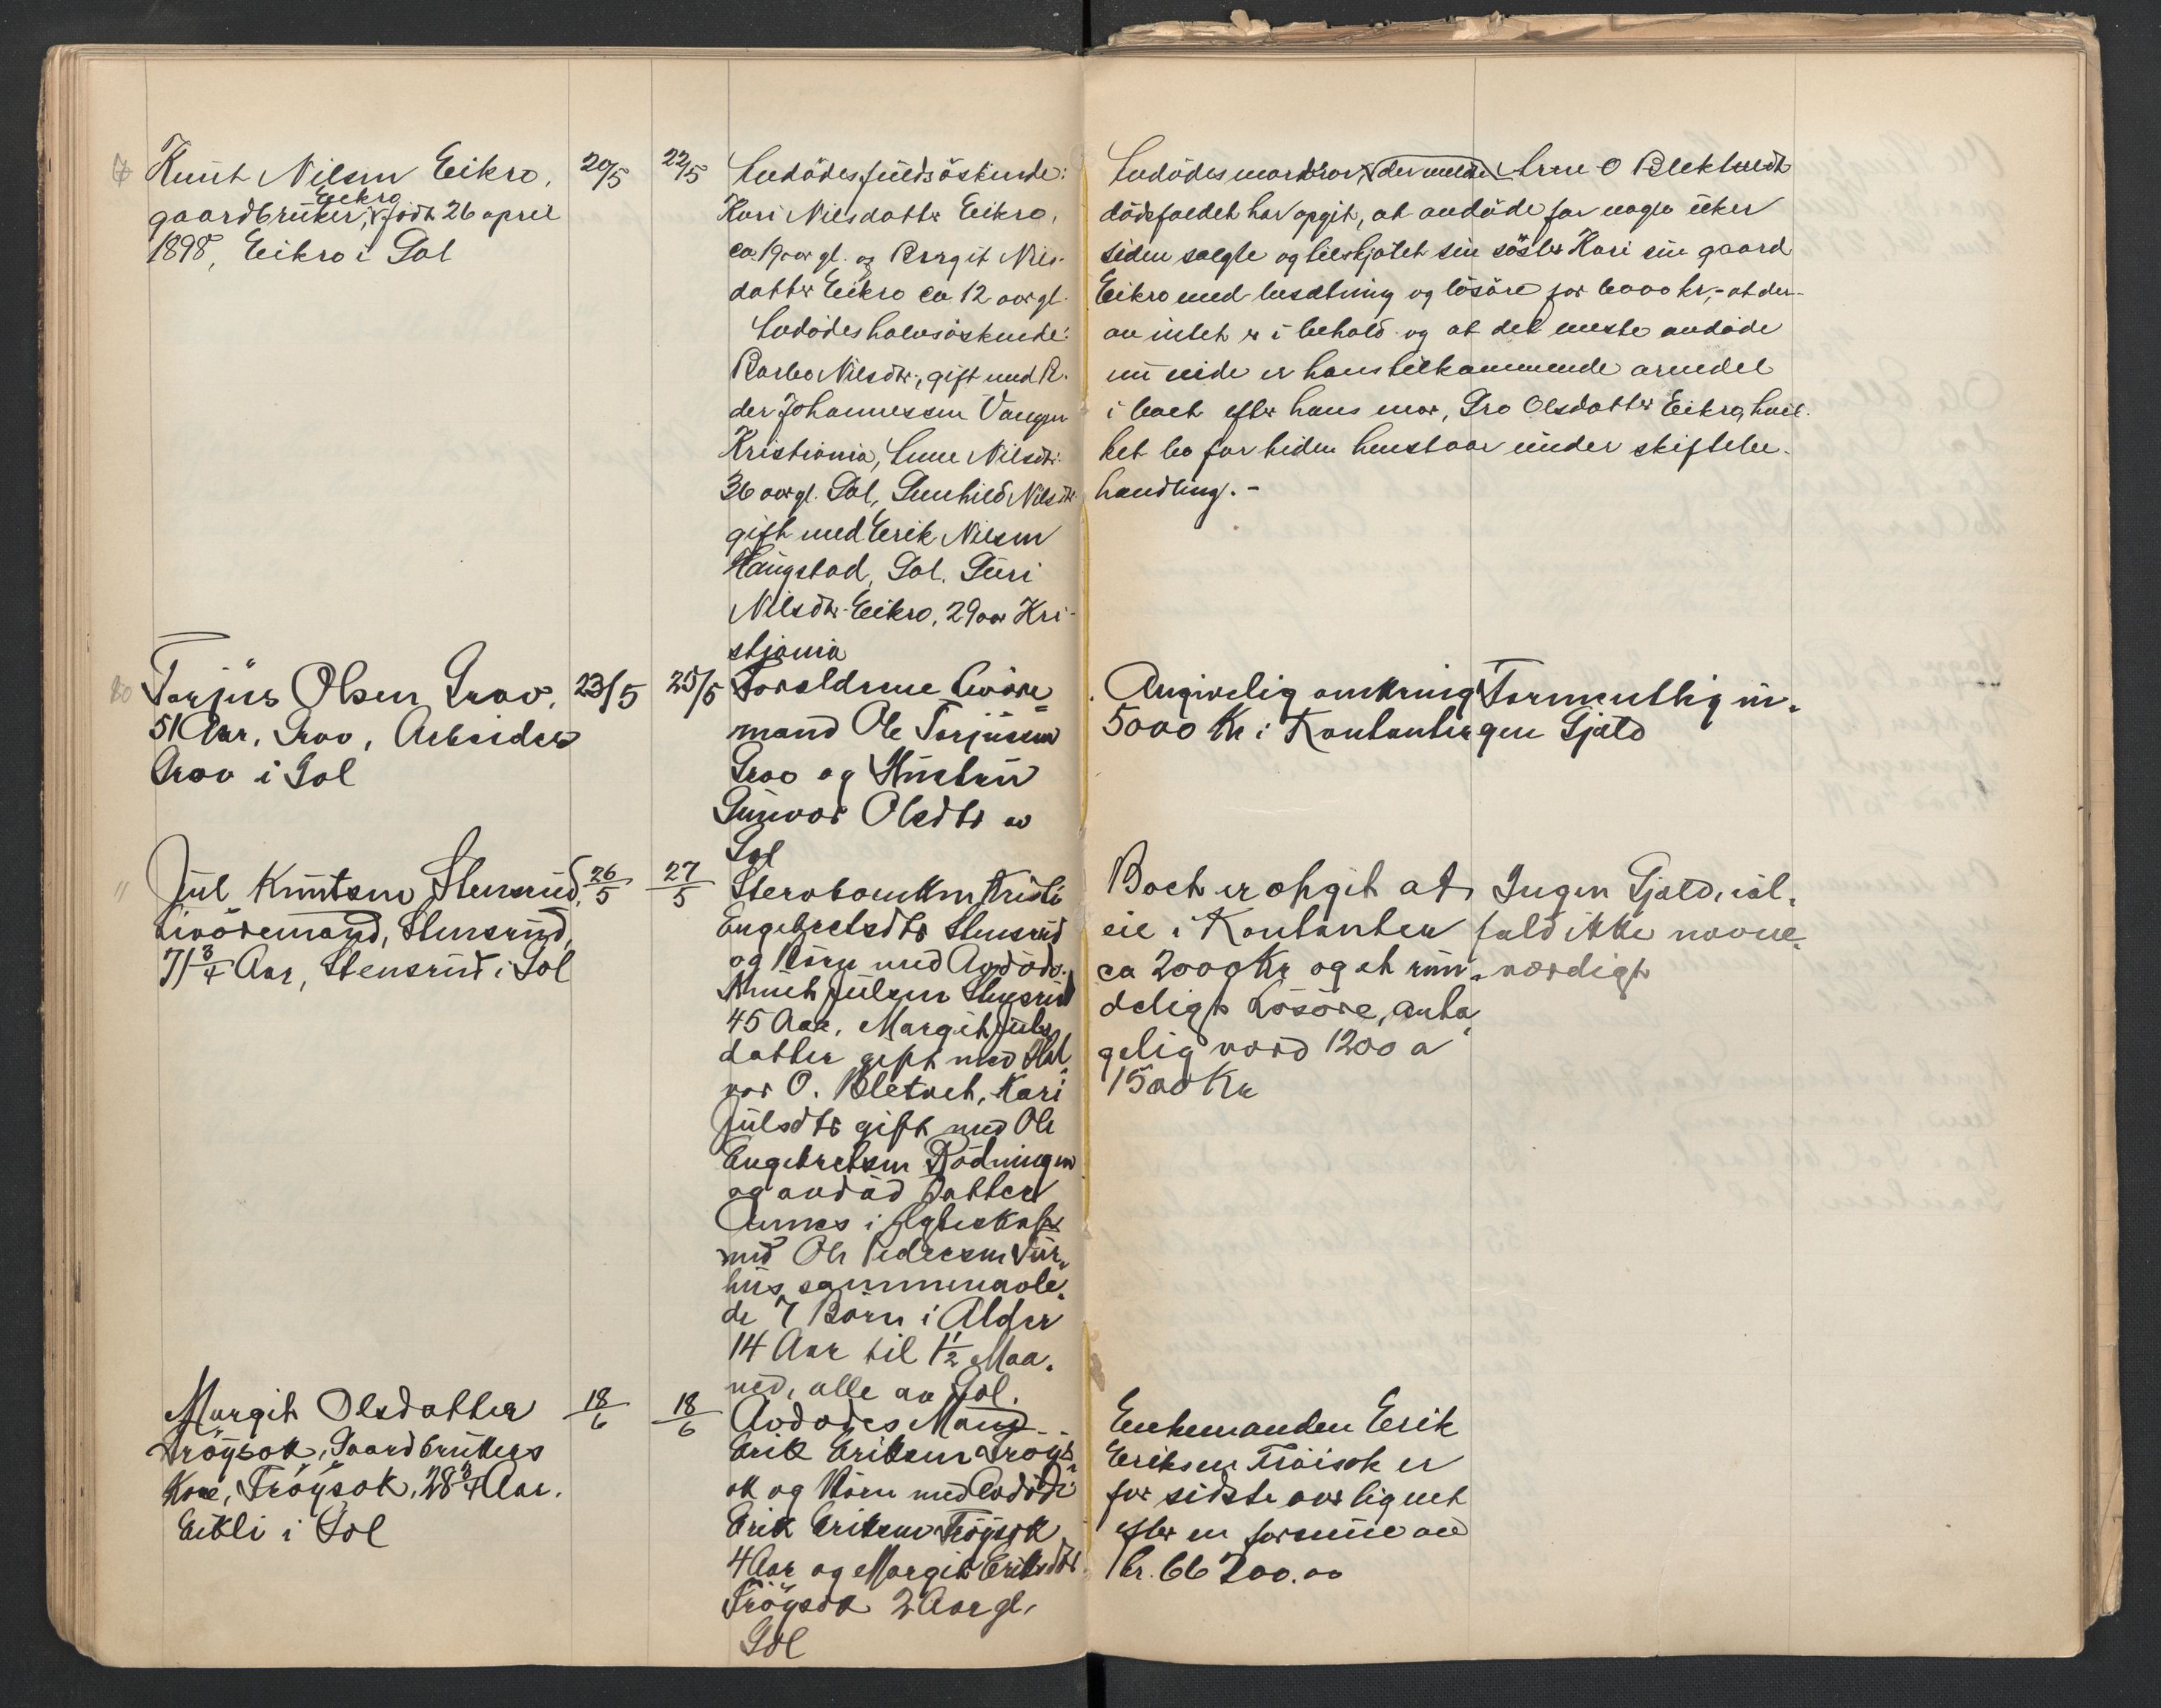 Knut Nilsen Eikro,
gaardbruker, Eikro, född 26 april
1898, Eikro i Gol
20/5
22/5
Avdödes fuldsöskende:
Kari Nilsdatter Eikro,
ca. 19 aar gl. og Birgit Nils-
datter Eikro ca 12 aar gl.
Avdödes halvsöskende:
Barbo Nilsdtr., gift med
der Johannessen Vangen
Kristiania, Nilsdtr.
36 aar gl. Gol, Gunhild Nilsdtr
gift med Eerik Nilsen
Haugstad, Gol. Guri
Nilsdtr. Eikro, 29 aar Kri-
stjania
Avdödes morbror, Arne O
dödsfaldet har opgit, at avdöde for nogle uker
siden solgte og tilskjötet sin söster Kari sin gaard
Eikro med besætning og lösöre for 6000 kr,- at der-
av intet er i behold og at det meste avdöde
nu eide er hans tilkommende arvedel
i boet efter hans mor, Gro Olsdatter Eikro, hvil-
ket bo for tiden henstaar under skiftebe-
handling. -
80
Torjus Olsen Grov,
51 Aar, Grov, Arbeider
Grov i Gol
23/5
25/5
Forældrene Livöre-
mand Ole Torjusen
Grov og Hustru
Gunvor Olsdtr av
Gol
Angivelig omkring
5000 Kr i Kontanter
Formentlig in-
gen Gjæld
"
Jul Knutsen Stensrud,
Livöremand, Stensrud,
71 3/4 Aar, Stensrud i Gol
26/5
27/5
Stervboenken Kristi
Engebretsdtr Stensrud
og Börn med Avdöde.
Knut Julsen Stensrud
45 Aar, Margit Juls-
datter gift med Hal-
vor O. Kari
Julsdtr gift med Ole
Engebretsen Rödningen
og avdöd Datter
Annes i Egteskap
med Ole Pedersen
hus sammenavle-
de 7 Börn i Alder
14 Aar til 1 1/2 Maa-
ned, alle av Gol.
Boet er opgit at
eie i Kontanter
ca 2000 Kr og et rim-
deligt Lösöre, anta-
gelig værd 1200 a
1500 Kr
Ingen Gjæld, ial-
fald ikke nævne-
værdigt
Margit Olsdatter
Tröysok, Gaardbrukers
Kone, Tröysok, 28 3/4 Aar.
Eikli i Gol
18/6
18/6
Avdödes Mand
Erik Eriksen Tröys-
ok og Börn med Avdöde
Erik Eriksen Tröysok
4 Aar og Margit Eriksdtr
Tröysok 2 Aar gl.
Gol
Enkemanden Erik
Eriksen Tröisok er
for sidste aar lignet
efter en formue av
kr. 66200.00